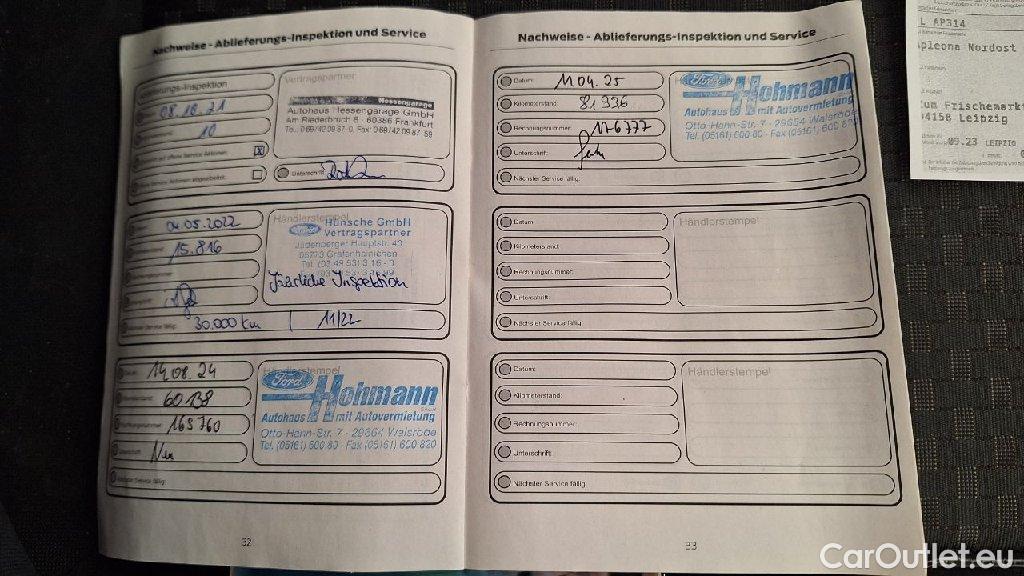 Nachweise - Ablieferungs-Inspektion und Service
Ablieferungs-Inspektion
08.10.21
10
Vertragspartner
Hessengarage
Autohaus Hessengarage GmbH
Am Riederbruch 8 - 60386 Frankfurt
Unterschrift
04.05.2022
15.816
Händlerstempel
Ford Hünsche GmbH
Vertragspartner
Jüdenberger Hauptstr. 43
06773 Gräfenhainichen
Jährliche Inspektion
Nächster Service fällig:
30.000 km 11/22
14.08.24
60138
165760
Händlerstempel
Ford Hohmann
GmbH
Autohaus mit Autovermietung
Otto-Hahn-Str. 7 - 29664 Walsrode
Tel. (05161) 600 80 - Fax (05161) 600 820
Nächster Service fällig:
32
Nachweise - Ablieferungs-Inspektion und Service
Datum: 11.04.25
Kilometerstand: 81.336
Rechnungsnummer: 176777
Unterschrift:
Nächster Service fällig:
Ford Hohmann
Autohaus mit Autovermietung
Otto-Hahn-Str. 7 - 29664 Walsrode
Tel. (05161) 600 80 - Fax (05161) 600 820
Datum:
Kilometerstand:
Rechnungsnummer:
Unterschrift:
Nächster Service fällig:
Händlerstempel
Datum:
Kilometerstand:
Rechnungsnummer:
Unterschrift:
Nächster Service fällig:
Händlerstempel
33
L AP314
Apleona Nordost
Zum Frischemarkt
04158 Leipzig
.09.23 LEIPZIG
CarOutlet.eu